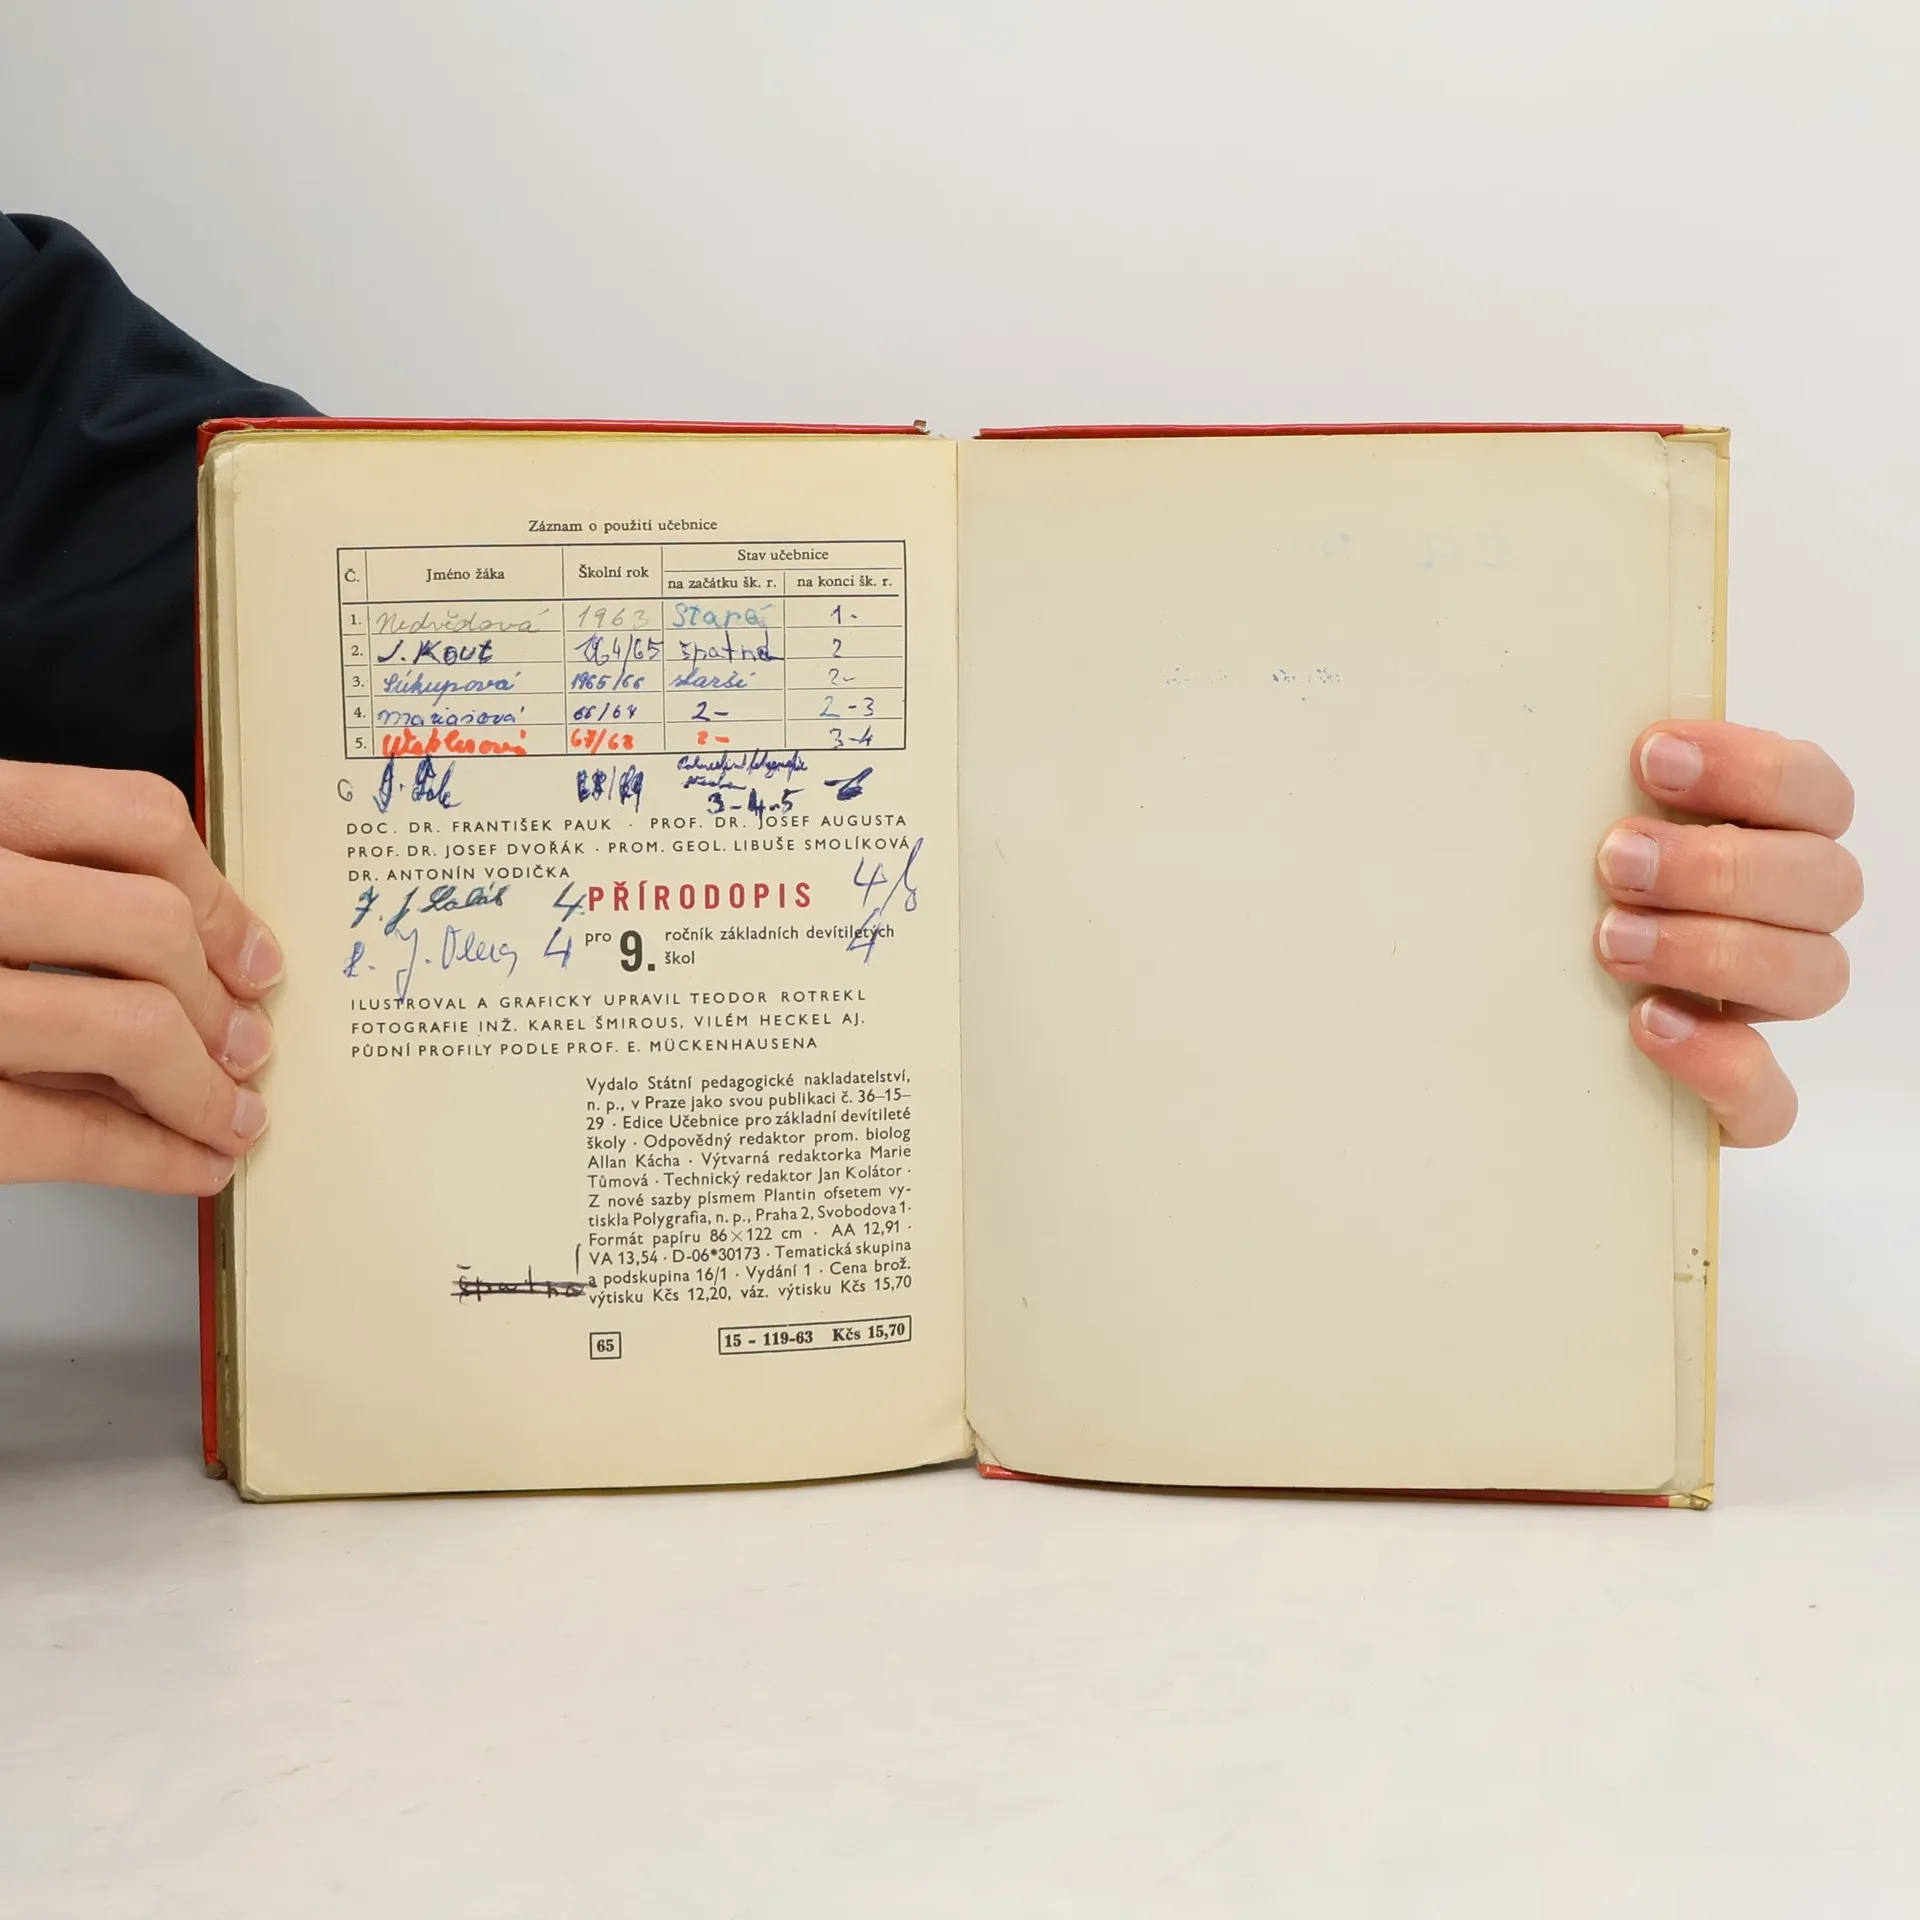 Záznam o použití učebnice
Č. Jméno žáka Školní rok Stav učebnice
na začátku šk. r. na konci šk. r.
1. Nedvědová 1963 Stará 1-
2. J. Kout 1964/65 špatná 2
3. 1965/66 starší 2-
4. 2- 2-3
5. 67/68 2- 3-4
6 3-4-5
DOC. DR. FRANTIŠEK PAUK · PROF. DR. JOSEF AUGUSTA
PROF. DR. JOSEF DVOŘÁK · PROM. GEOL. LIBUŠE SMOLÍKOVÁ
DR. ANTONÍN VODIČKA
7. J 4 PŘÍRODOPIS
J. 4 pro 9. ročník základních devítiletých 4
škol
ILUSTROVAL A GRAFICKY UPRAVIL TEODOR ROTREKL
FOTOGRAFIE INŽ. KAREL ŠMIROUS, VILÉM HECKEL AJ.
PŮDNÍ PROFILY PODLE PROF. E. MÜCKENHAUSENA
Vydalo Státní pedagogické nakladatelství,
n. p., v Praze jako svou publikaci č. 36–15–
29 · Edice Učebnice pro základní devítileté
školy · Odpovědný redaktor prom. biolog
Allan Kácha · Výtvarná redaktorka Marie
Tůmová · Technický redaktor Jan Kolátor ·
Z nové sazby písmem Plantin ofsetem vy-
tiskla Polygrafia, n. p., Praha 2, Svobodova 1·
Formát papíru 86×122 cm · AA 12,91 ·
VA 13,54 · D-06*30173 · Tematická skupina
a podskupina 16/1 · Vydání 1 · Cena brož.
špatná výtisku Kčs 12,20, váz. výtisku Kčs 15,70
65 15 - 119-63 Kčs 15,70